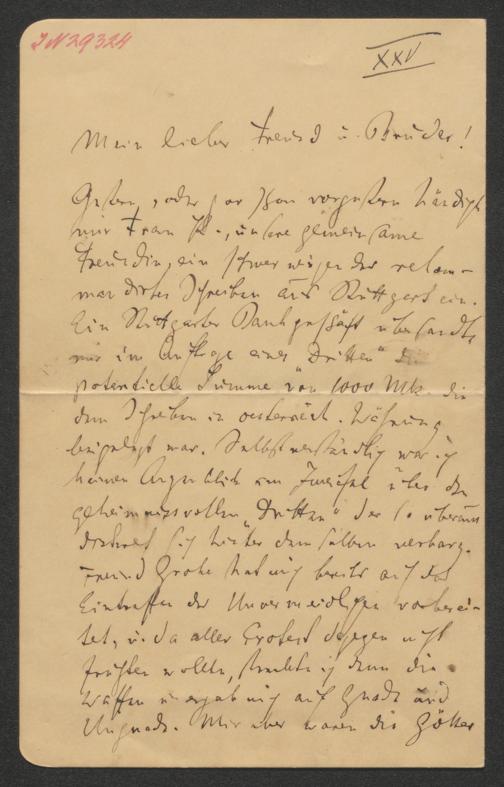 IN 29324
XXV
Mein lieber Freund u. Bruder!
Gestern, oder gar schon vorgestern händigte
mir Frau K., unsere gemeinsame
Freundin, ein schwer wiegendes rekom-
mandirtes Schreiben aus Stuttgart ein.
Ein Stuttgarter Bankgeschäft übersandte
mir im Auftrage eines "Dritten" die
potentielle Summe von 1000 Mk. die
dem Schreiben in oesterreich. Währung
beigelegt war. Selbstverständlich war ich
keinen Augenblick im Zweifel über den
geheimnissvollen "Dritten" der so überaus
diskret sich hinter demselben verbarg.
Freund Grohe hat mich bereits auf das
Eintreffen des Unvermeidlichen vorberei-
tet, u. da aller Protest dagegen nicht
fruchten wollte, streckte ich denn die
Waffen u. ergab mich auf Gnade und
Ungnade. Mir aber waren die Götter